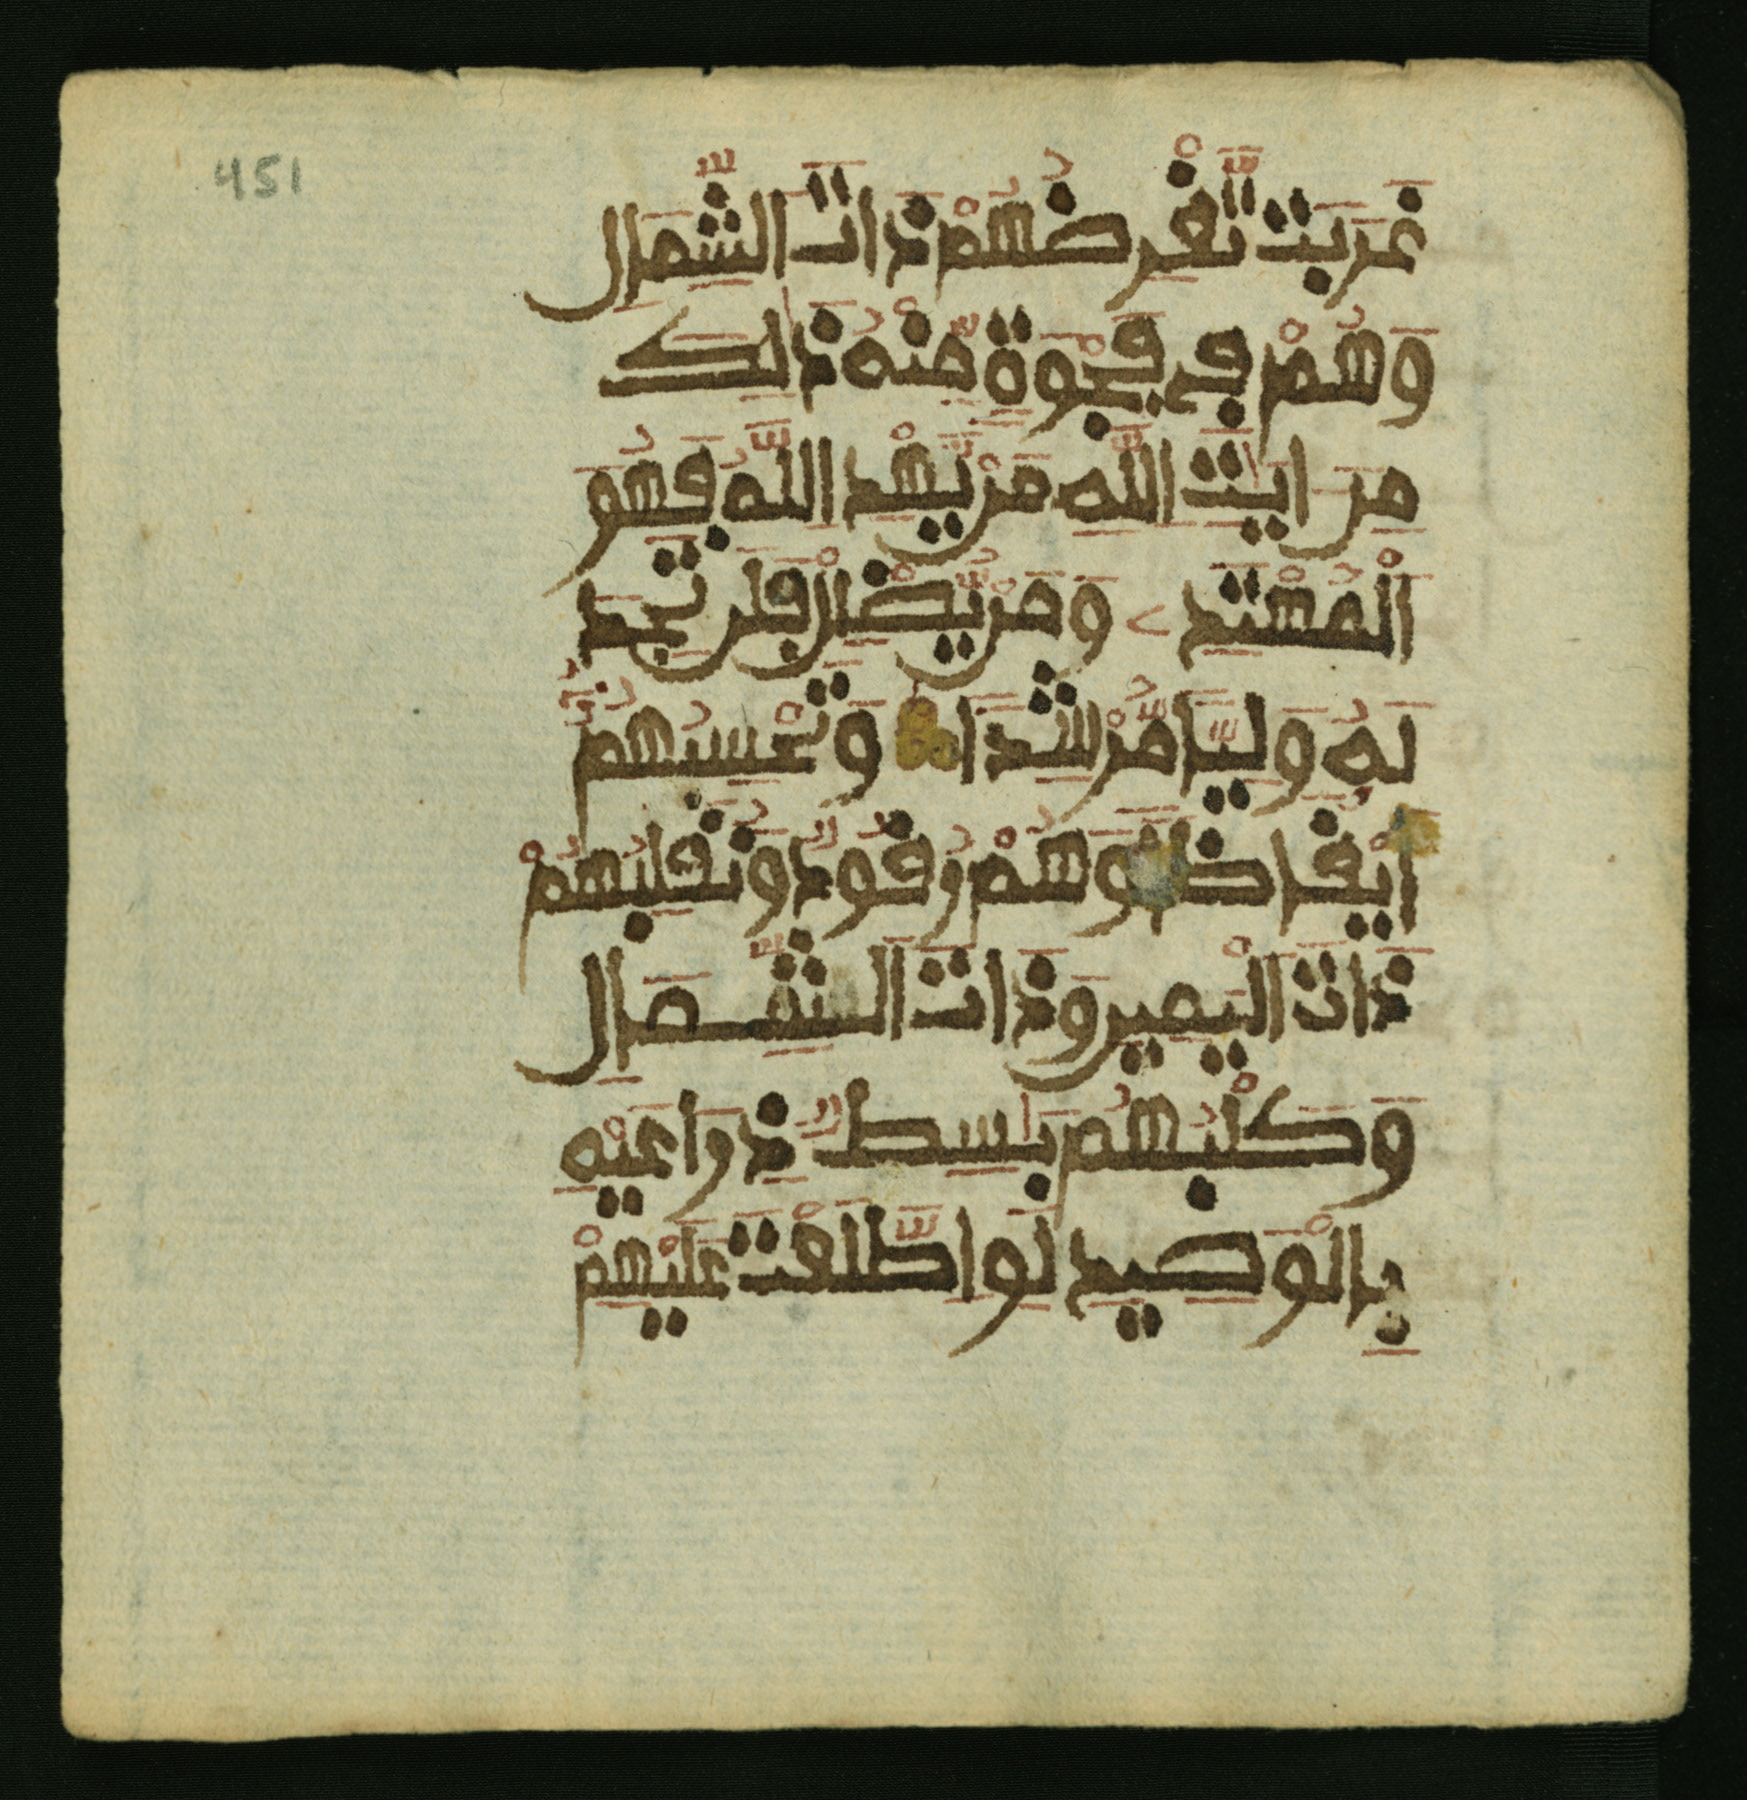 451
غَرَبَت تَّقْرِضُهُمْ ذَاتَ الشِّمَالِ
وَهُمْ فِي فَجْوَةٍ مِّنْهُ ذَٰلِكَ
مِنَ ايَٰتِ اللَّهِ مَنْ يَّهْدِ اللَّهُ فَهُوَ
الْمُهْتَدِے وَمَنْ يُّضْلِلْ فَلَن تَجِدَ
لَهُ وَلِيّاً مُّرْشِداً وَتَحْسِبُهُمُۥ
أَيْقَاظاً وَهُمْ رُقُودٌ وَنُقَلِّبُهُمْ
ذَاتَ الْيَمِينِ وَذَاتَ الشِّمَالِ
وَكَلْبُهُم بَٰسِطٌ ذِرَاعَيْهِ
بِالْوَصِيدِ لَوِ اطَّلَعْتَ عَلَيْهِمْ